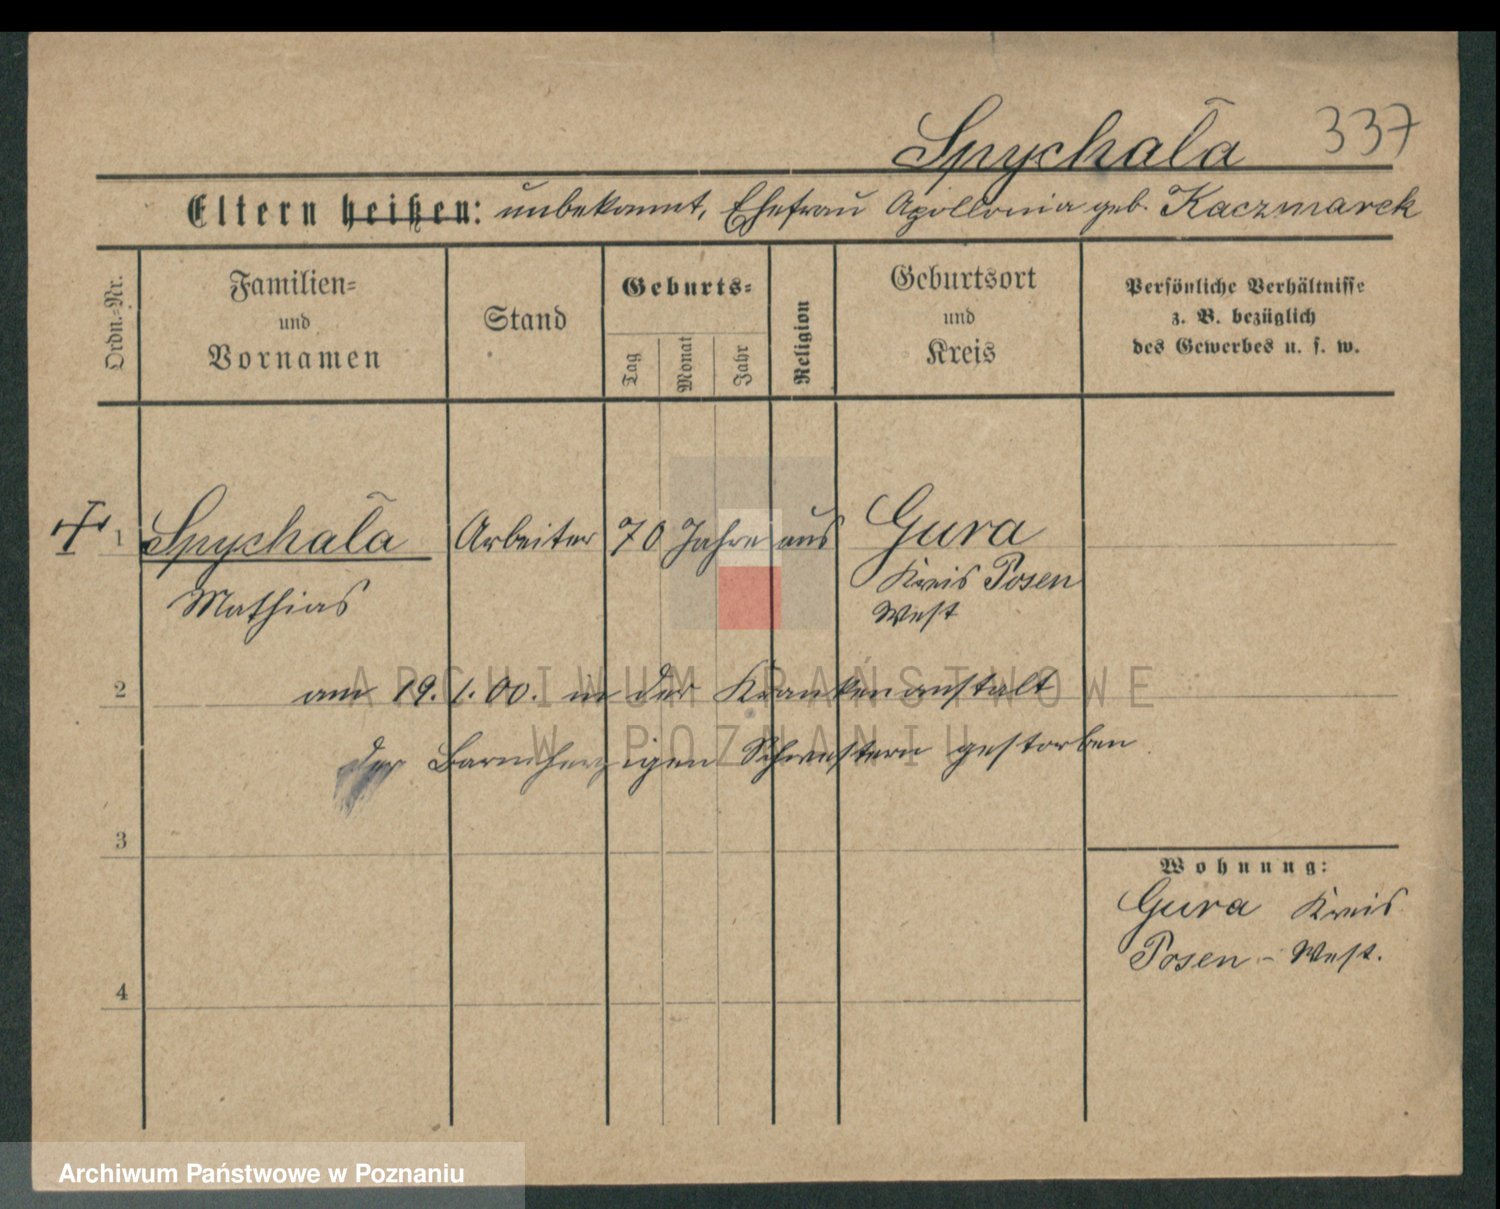 Spychała 337
Eltern heißen: unbekannt, Ehefrau Apollonia geb. Kaczmarek
Ordn.-Nr.
Familien-
und
Vornamen
Stand
Geburts-
Tag
Monat
Jahr
Religion
Geburtsort
und
Kreis
Persönliche Verhältnisse
z. B. bezüglich
des Gewerbes u. s. w.
1 Spychała Arbeiter 70 Jahre aus Gura
Kreis Posen
Mathias West
2 am 19. 1. 00. in der Krankenanstalt
der Barmherzigen Schwestern gestorben
3
Wohnung:
Gura Kreis
Posen - West.
4
ARCHIWUM PAŃSTWOWE
W POZNANIU
Archiwum Państwowe w Poznaniu